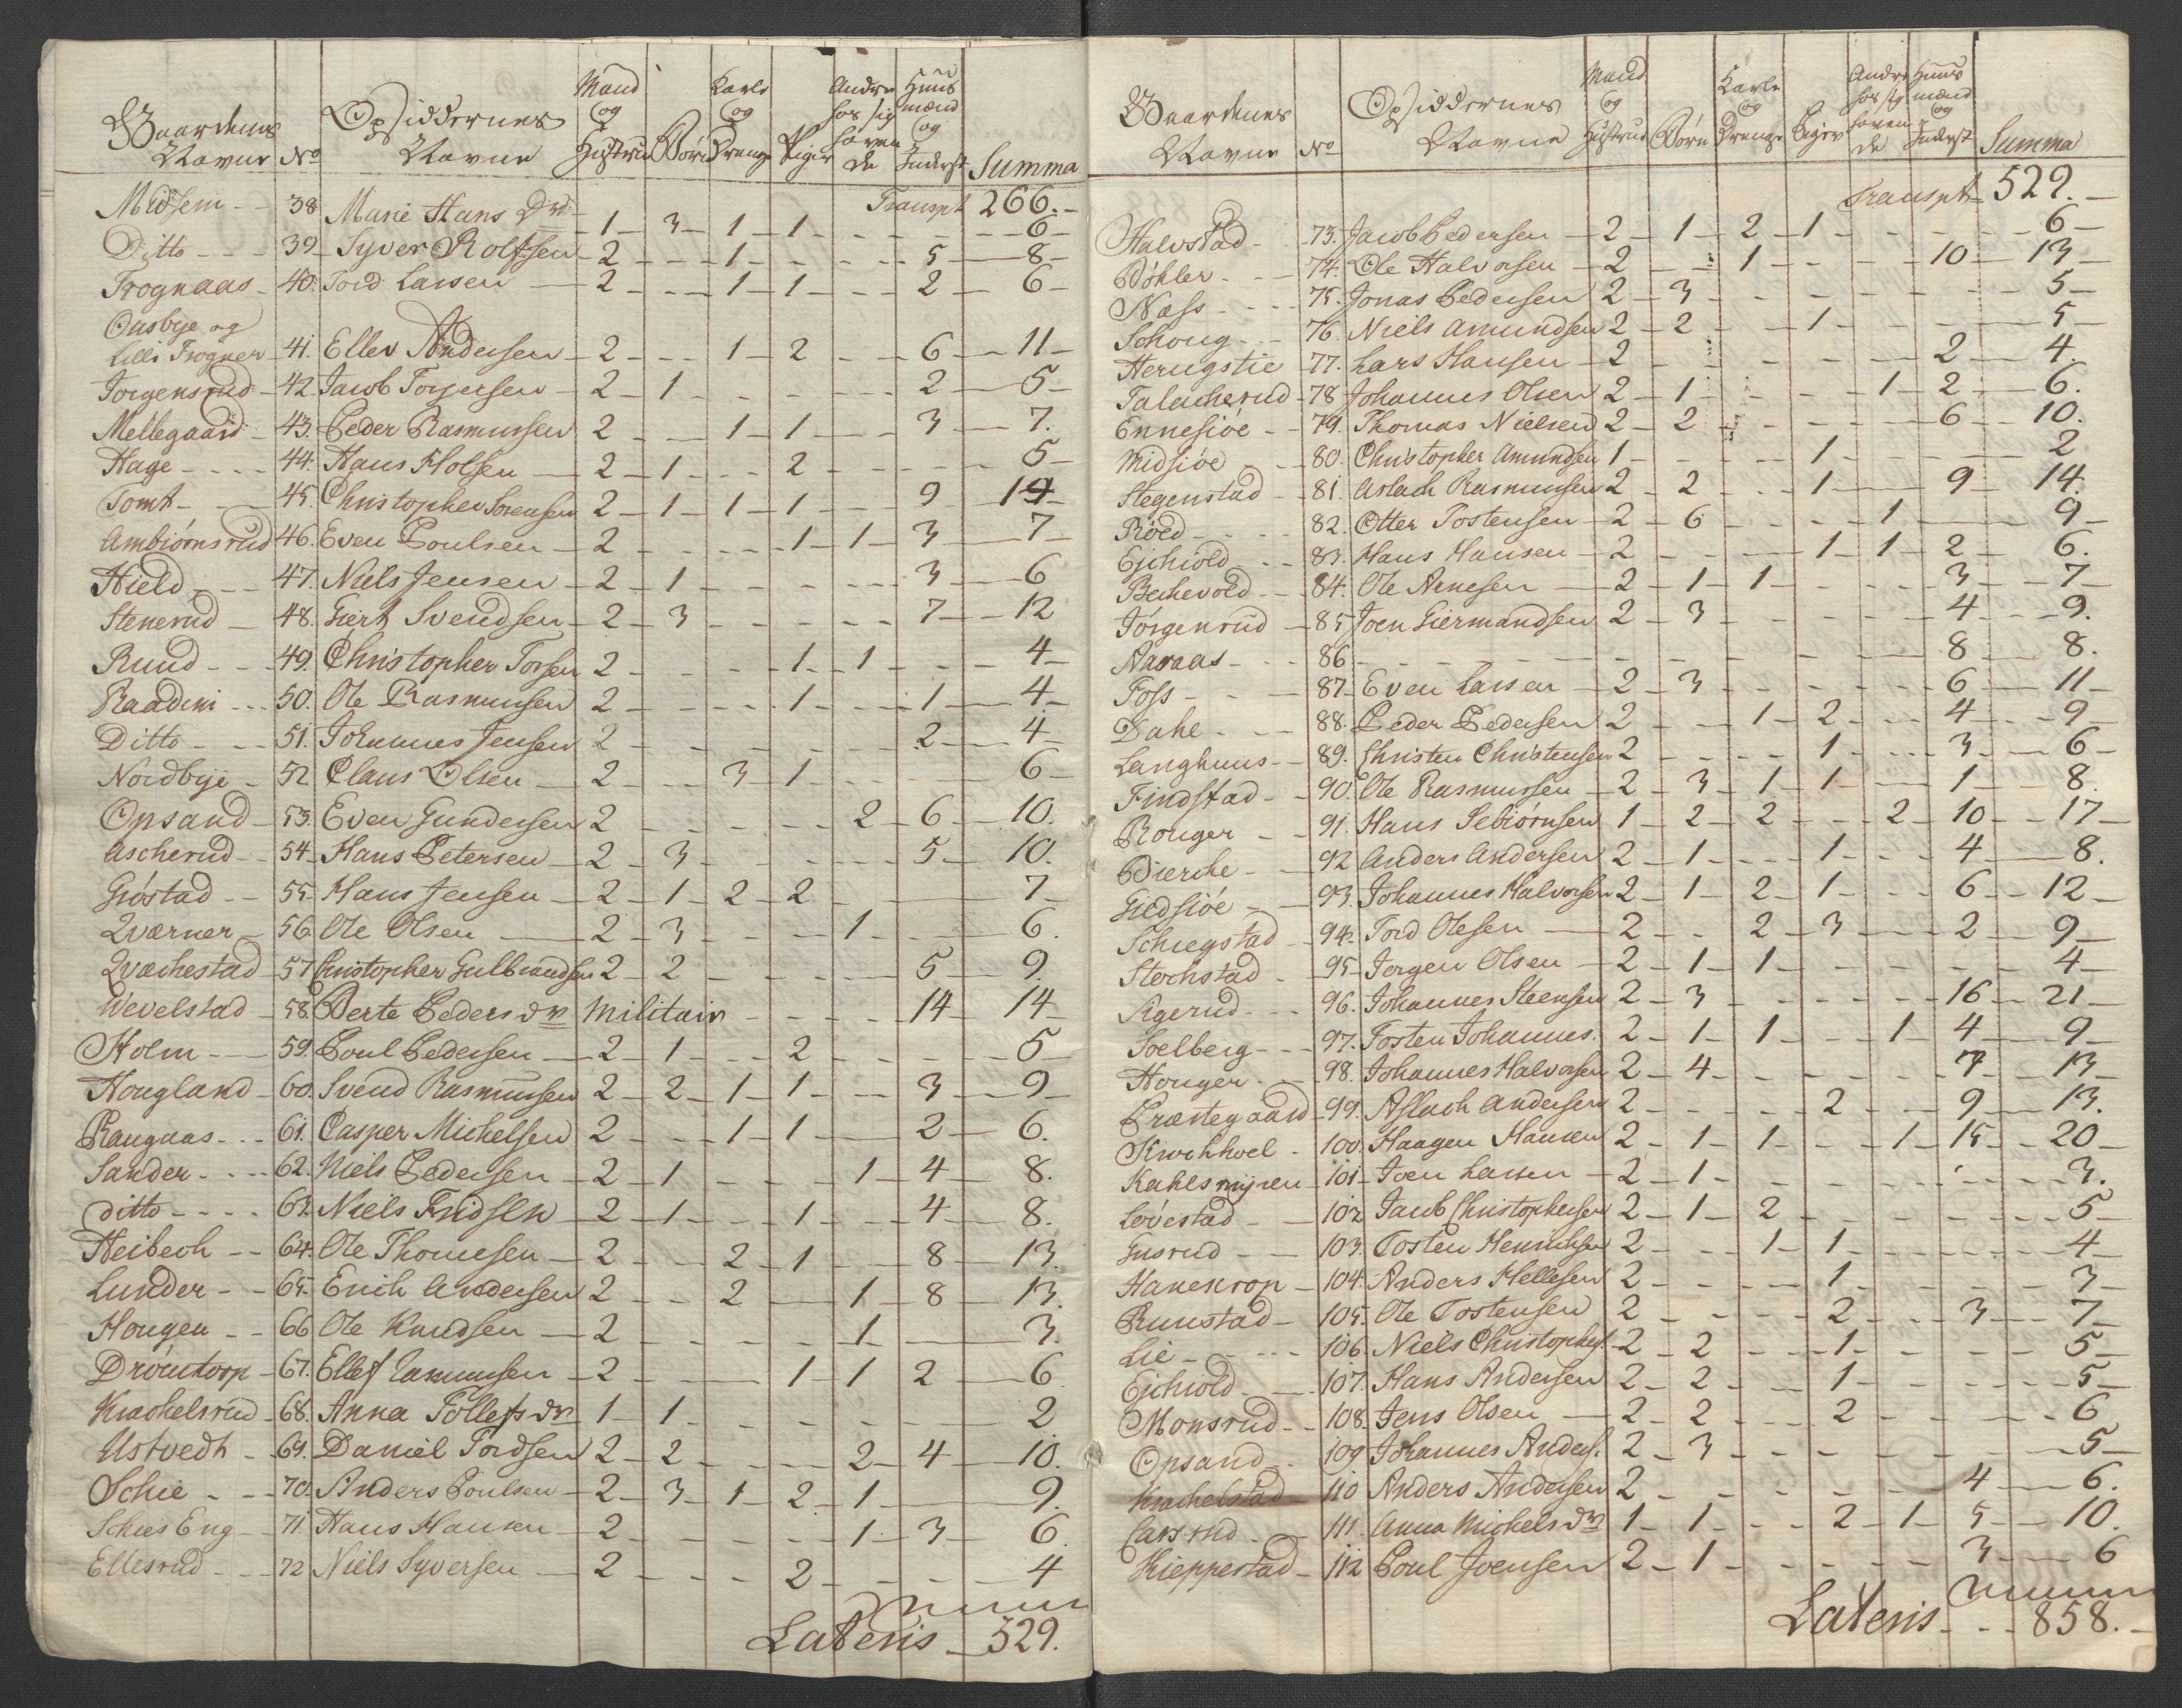 Gaardenes Navne No Opsiddernes Navne Mand og Hustru Børn Karle og Drenge Piger Andre hos sig havende Huusmænd og Inderst Summa
Transpt 266.
Midsem 38 Marie Hans Dr. 1 3 1 1 - - 6
Ditto 39 Syver Rolfsen 2 - 1 - - 5 8
Frognaas 40. Tord Larsen 2 - 1 1 - 2 6
Ousbye og
Lille Frogner 41. Ellev Andersen 2 - 1 2 - 6 11
Jorgensrud 42. Jacob Torjersen 2 1 - - - 2 5
Mellegaard 43. Peder Rasmussen 2 - 1 1 - 3 7.
Hage 44. Hans Holsen 2 1 - 2 - - 5
Tomt 45. Christopher Sorensen 2 1 1 1 - 9 14
Ambiørnsrud 46. Even Poulsen 2 - - 1 1 3 7
Hield 47. Niels Jensen 2 1 - - - 3 6
Stenerud 48. Giert Svendsen 2 3 - - - 7 12
Ruud 49. Christopher Torsen 2 - - 1 1 - 4
Raadem 50. Ole Rasmussen 2 - - 1 - 1 4
Ditto 51. Johannes Jensen 2 - - - - 2 4
Nordbye 52 Claus Olsen 2 - 3 1 - - 6
Opsand 53. Even Gundersen 2 - - - 2 6 10.
Ascherud 54. Hans Petersen 2 3 - - - 5 10.
Giøstad 55. Hans Jensen 2 1 2 2 - - 7
Qværner 56. Ole Olsen 2 3 - - 1 - 6.
Qvæchestad 57 Christopher Gulbrandsen 2 2 - - - 5 9.
Wevelstad 58. Berte Peders dr. Militair - - - 14 14
Holm 59. Poul Pedersen 2 1 - 2 - - 5
Hougland 60. Svend Rasmussen 2 2 1 1 - 3 9
Raugaas 61. Casper Michelsen 2 - 1 1 - 2 6.
Sander 62. Niels Pedersen 2 1 - - 1 4 8.
ditto 63. Niels Fridsen 2 1 - 1 - 4 8.
Heibech 64. Ole Thomesen 2 - 2 1 - 8 13.
Lunder 65. Erich Andersen 2 - 2 - 1 8 13.
Hougen 66 Ole Knudsen 2 - - - 1 - 3.
Drømtorp 67. Ellef Rasmussen 2 - - 1 1 2 6
Krachelsrud 68. Anna Tollefs dr. 1 1 - - - - 2
Ustvedt 69. Daniel Tordsen 2 2 - - 2 4 10.
Schie 70. Anders Poulsen 2 3 1 2 1 - 9.
Schies Eng 71. Hans Hansen 2 - - - 1 3 6.
Ellesrud 72 Niels Syversen 2 - - 2 - - 4
Lateris 529.
Gaardenes Navne No Opsiddernes Navne Mand og Hustrue Børn Karle og Drenge Piger Andre hos sig havende Huusmænd og Inderst Summa
Transpt 529.
Halvstad 73. Jacob Pedersen 2 1 2 1 - - 6
Døhler 74. Ole Halvorsen 2 - 1 - - 10 13
Næss 75. Jonas Pedersen 2 3 - - - - 5
Schoug 76. Niels Amundsen 2 2 - 1 - - 5
Herugstie 77. Lars Hansen 2 - - - - 2 4.
Talacherud 78 Johannes Olsen 2 1 - - 1 2 6.
Ennesiøe 79. Thomas Nielsen 2 2 - - - 6 10.
Midsiøe 80. Christopher Amundsen 1 - - 1 - - 2
Stegenstad 81. Aslach Rasmussen 2 2 - 1 - 9 14.
Røed 82. Otter Tostensen 2 6 - - 1 - 9
Ejchiold 83. Hans Hansen 2 - - 1 1 2 6.
Bechevold 84. Ole Arnesen 2 1 1 - - 3 7
Jørgenrud 85 Joen Giermandsen 2 3 - - - 4 9.
Aaraas 86 - - - - - - 8 8.
Foss 87. Even Larsen 2 3 - - - 6 11
Dahe 88. Peder Pedersen 2 - 1 2 - 4 9
Langhuus 89. Christen Christensen 2 - - 1 - 3 6
Findstad 90. Ole Rasmussen 2 3 1 1 - 1 8.
Rouger 91. Hans Sebiørnsen 1 2 2 - 2 10 17
Bierche 92 Anders Andersen 2 1 - 1 - 4 8.
Giedsiøe 93. Johannes Halvorsen 2 1 2 1 - 6 12
Schiegstad 94. Tord Olesen 2 - 2 3 - 2 9
Stochstad 95 Jorgen Olsen 2 1 1 - - - 4
Agerud 96. Johannes Steensen 2 3 - - - 16 21
Soelberg 97. Tosten Johannes. 2 1 1 - 1 4 9
Houger 98. Johannes Halvorsen 2 4 - - - 7 13
Præstegaard 99. Aslach Andersen 2 - - 2 - 9 13.
Kirchhoel 100. Haagen Hansen 2 1 1 - 1 15 20
Kahlsmyren 101 Joen Larsen 2 1 - - - - 3.
Løvestad 102 Jacob Christophersen 2 1 2 - - - 5
Gusrud 103. Tosten Henrichsen 2 - 1 1 - - 4
Hanekrop 104. Anders Hellesen 2 - - 1 - - 3
Ruustad 105. Ole Tostensen 2 - - 2 - 3 7
Lie 106. Niels Christophers. 2 2 - 1 - - 5
Ejchiold 107. Hans Andersen 2 2 - 1 - - 5
Monsrud 108. Jens Olsen 2 2 - 2 - - 6
Opsand 109 Johannes Anders. 2 3 - - - - 5
Krachelstad 110 Anders Andersen 2 - - - - 4 6.
Carsrud 111. Anna Michels dr. 1 1 - 2 1 5 10.
Kieppestad 112 Poul Joensen 2 1 - - - 3 6
Lateris 858.